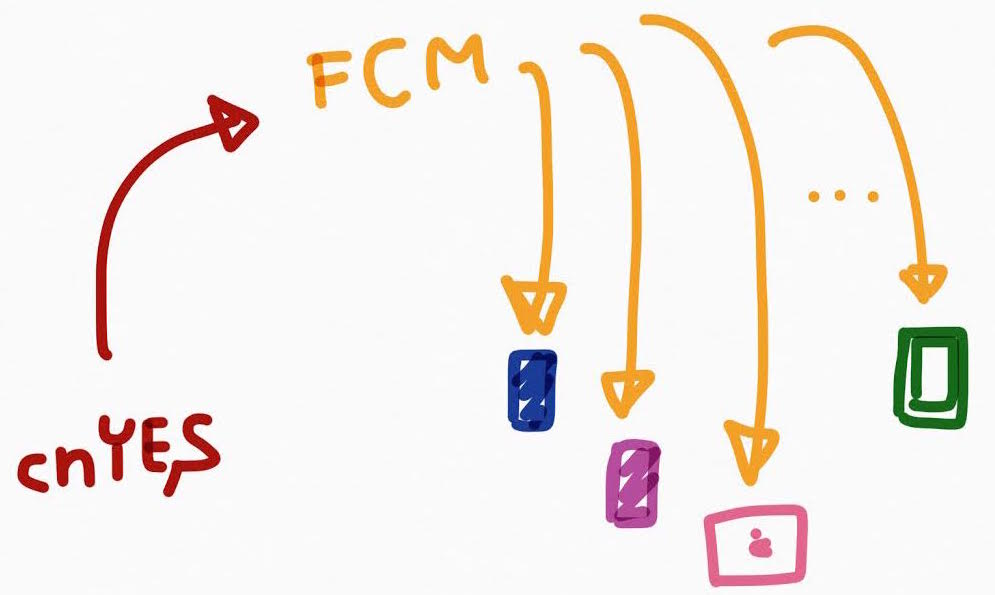 FCM
...
cnYES